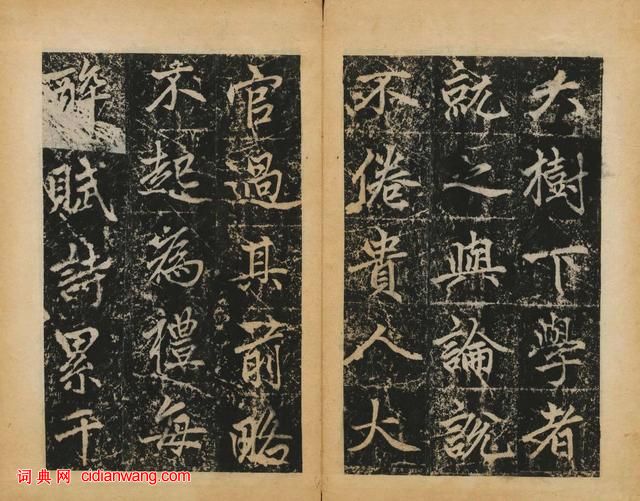 大樹下學者
就之與論說
不倦貴人大
官過其前略
不起為禮每
醉賦詩累千
词典网 cidianwang.com